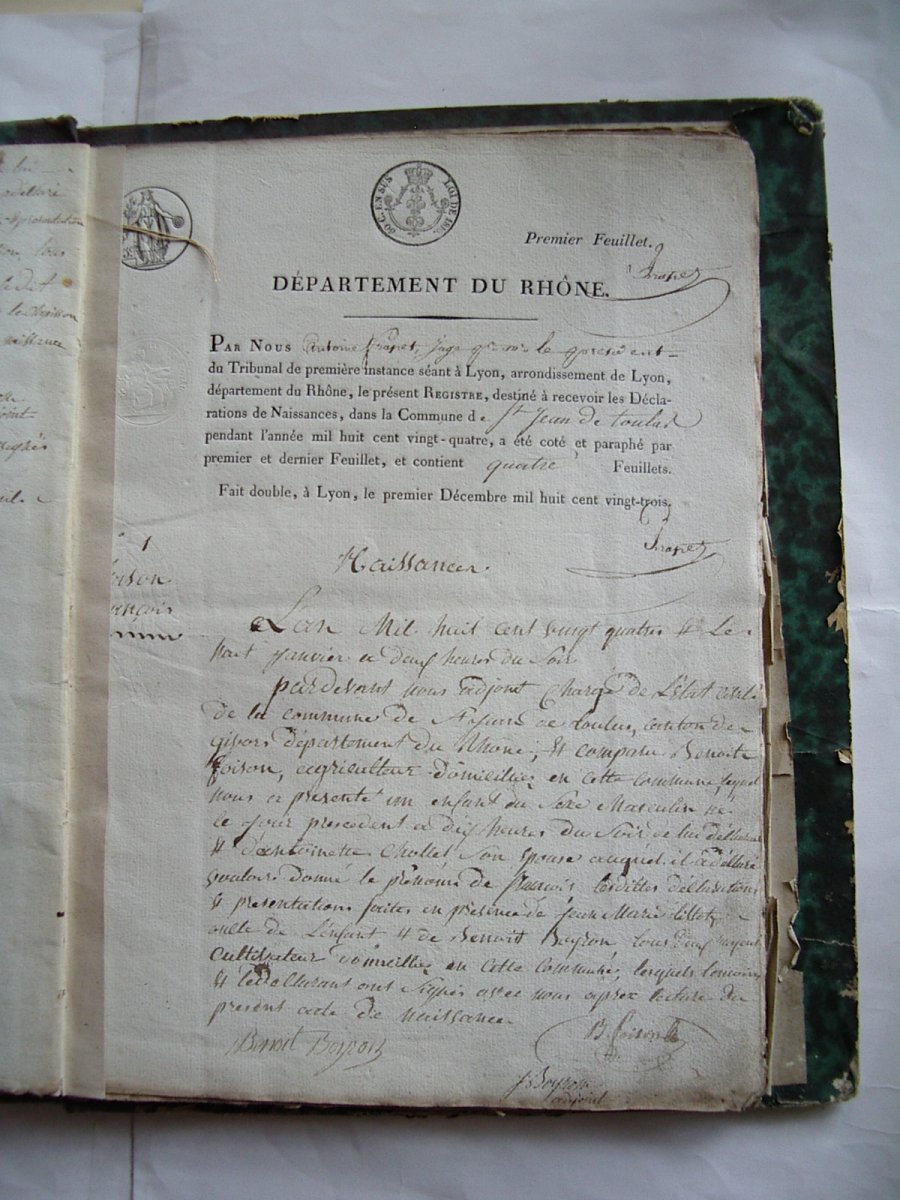 50 C. EN SUS
LOI DE
Premier Feuillet.
DÉPARTEMENT DU RHÔNE.
PAR NOUS Antoine juge le president
du Tribunal de première instance séant à Lyon, arrondissement de Lyon,
département du Rhône, le présent REGISTRE, destiné à recevoir les Décla-
rations de Naissances, dans la Commune de St Jean de toulas
pendant l'année mil huit cent vingt-quatre, a été coté et paraphé par
premier et dernier Feuillet, et contient quatre Feuillets.
Fait double, à Lyon, le premier Décembre mil huit cent vingt-trois.
1
Naissances.
L'an Mil huit cent vingt quatre & Le
huit janvier a deux heures du Soir
pardevant nous adjoint Chargé de L'état civil
de la commune de St jean de toulas, canton de
Givors département du Rhône, & comparu Benoite
foison, agriculteur domicilié en cette commune lequel
nous a présenté un enfant du Sexe Masculin né
le jour precedent a dix heures du Soir de lui déclarant
& d'antoinette Chollet Son épouse auquel il a déclaré
vouloir donné le prénoms de françois lesdittes déclarations
& presentations faites en présence de Jean Marie
oncle de L'enfant & de Benoit Boyron tous deux
Cultivateur domicilliés en cette Commune, lesquels temoins
& le déclarant ont Signés avec nous après lecture du
présent acte de naissance.
Benoit Boyron
B. foison
Boyron
adjoint